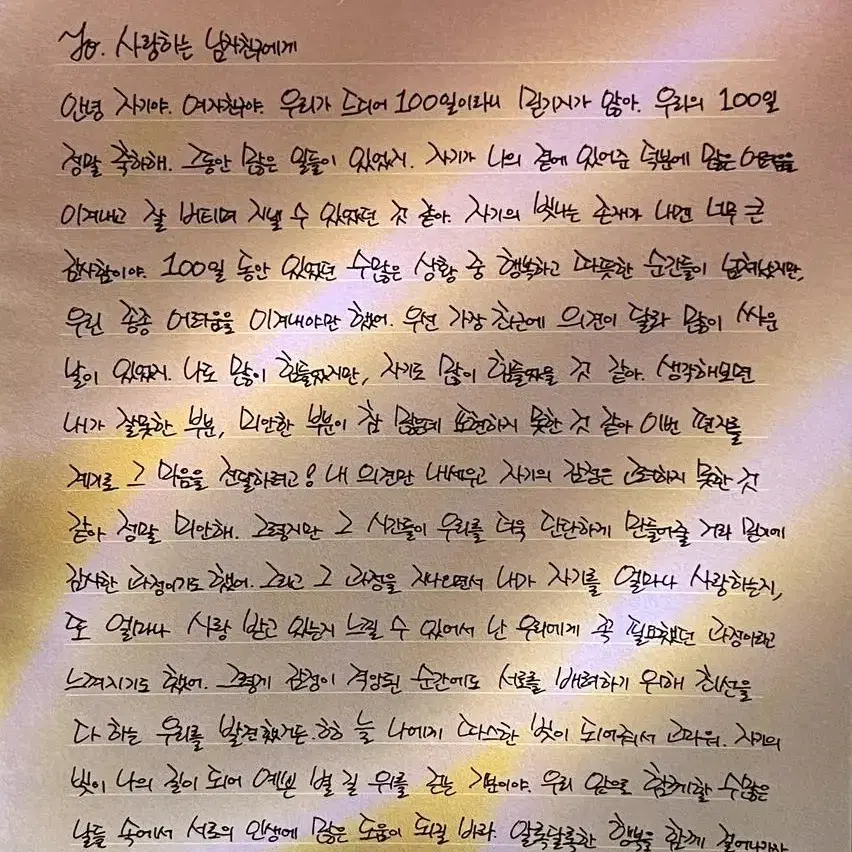 To. 사랑하는 남자친구에게
안녕 자기야. 여자친구야. 우리가 드디어 100일이라니 믿기지가 않아. 우리의 100일
정말 축하해. 그동안 많은 일들이 있었지. 자기가 나의 곁에 있어준 덕분에 많은 어려움을
이겨내고 잘 버티며 지낼 수 있었던 것 같아. 자기의 빛나는 존재가 나에겐 너무 큰
감사함이야. 100일 동안 있었던 수많은 상황 중 행복하고 따뜻한 순간들이 넘쳐났지만,
우린 종종 어려움을 이겨내야만 했어. 우선 가장 최근에 의견이 달라 많이 싸운
날이 있었지. 나도 많이 힘들었지만, 자기도 많이 힘들었을 것 같아. 생각해보면
내가 잘못한 부분, 미안한 부분이 참 많은데 표현하지 못한 것 같아 이번 편지를
계기로 그 마음을 전달하려고! 내 의견만 내세우고 자기의 감정은 고려하지 못한 것
같아 정말 미안해. 그렇지만 그 시간들이 우리를 더욱 단단하게 만들어줄 거라 믿기에
감사한 과정이기도 했어. 그리고 그 과정을 지나오면서 내가 자기를 얼마나 사랑하는지,
또 얼마나 사랑 받고 있는지 느낄 수 있어서 난 우리에게 꼭 필요했던 과정이라고
느껴지기도 했어. 그렇게 감정이 격앙된 순간에도 서로를 배려하기 위해 최선을
다 하는 우리를 발견했거든.ㅎㅎ 늘 나에게 따스한 빛이 되어줘서 고마워. 자기의
빛이 나의 길이 되어 예쁜 별 길 위를 걷는 기분이야. 우리 앞으로 함께할 수많은
날들 속에서 서로의 인생에 많은 도움이 되길 바라. 알록달록한 행복을 함께 걸어나가자